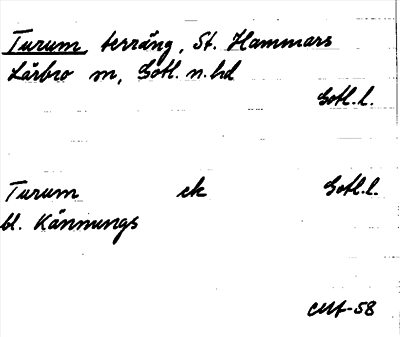 Turum terräng, St. Hammars
Lärbro sn, Gotl. n. hd
Gotl. l.
Turum ek Gotl. l.
bl. Kännungs
CMf-58